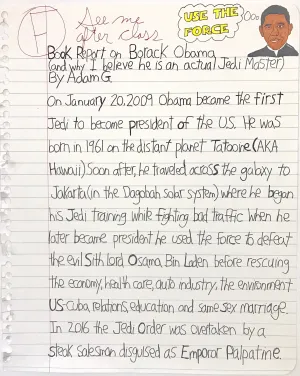 F
See me
after class
USE THE
FORCE
Book Report on Barack Obama
(and why I believe he is an actual Jedi Master)
By Adam G
On January 20, 2009 Obama became the first
Jedi to become president of the U.S. He was
born in 1961 on the distant planet Tatooine (AKA
Hawaii) Soon after, he traveled across the galaxy to
Jakarta (in the Dagobah solar system) where he began
his Jedi training while fighting bad traffic. When he
later became president he used the force to defeat
the evil Sith lord, Osama Bin Laden before rescuing
the economy, health care, auto industry, the environment
US-Cuba, relations, education, and same sex marriage.
In 2016 the Jedi Order was overtaken by a
steak salesman disguised as Emperor Palpatine.